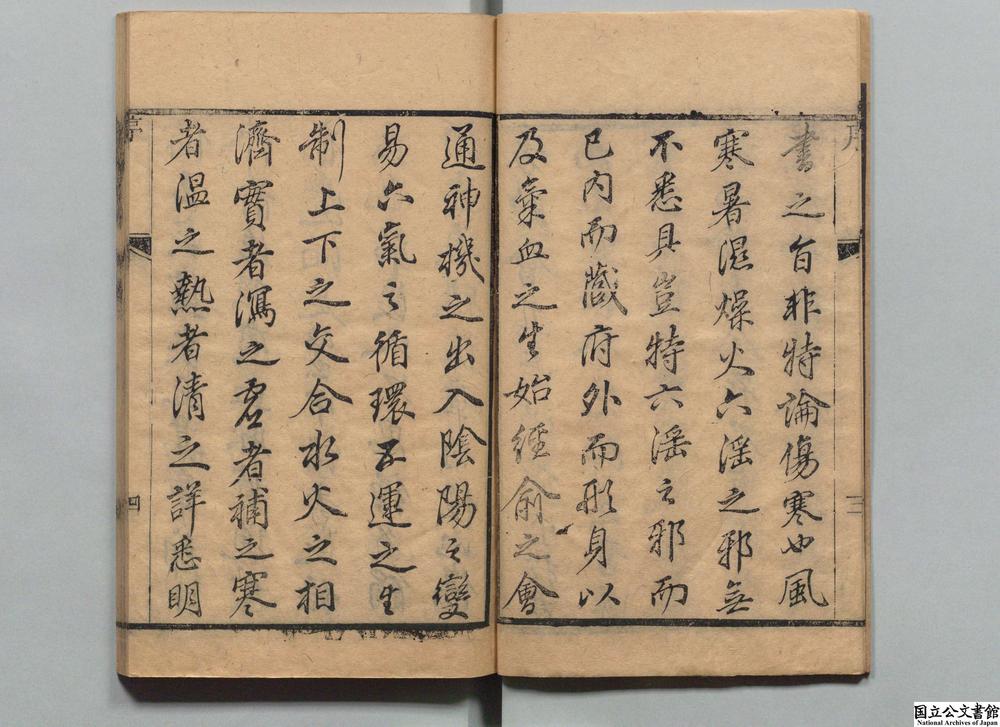 序
三
書之旨非特論傷寒也風
寒暑濕燥火六淫之邪無
不悉具豈特六淫之邪而
已內而藏府外而形身以
及氣血之生始經俞之會
通神機之出入陰陽之變
易六氣之循環五運之生
制上下之交合水火之相
濟實者瀉之虛者補之寒
者溫之熱者清之詳悉明
序
四
国立公文書館
National Archives of Japan